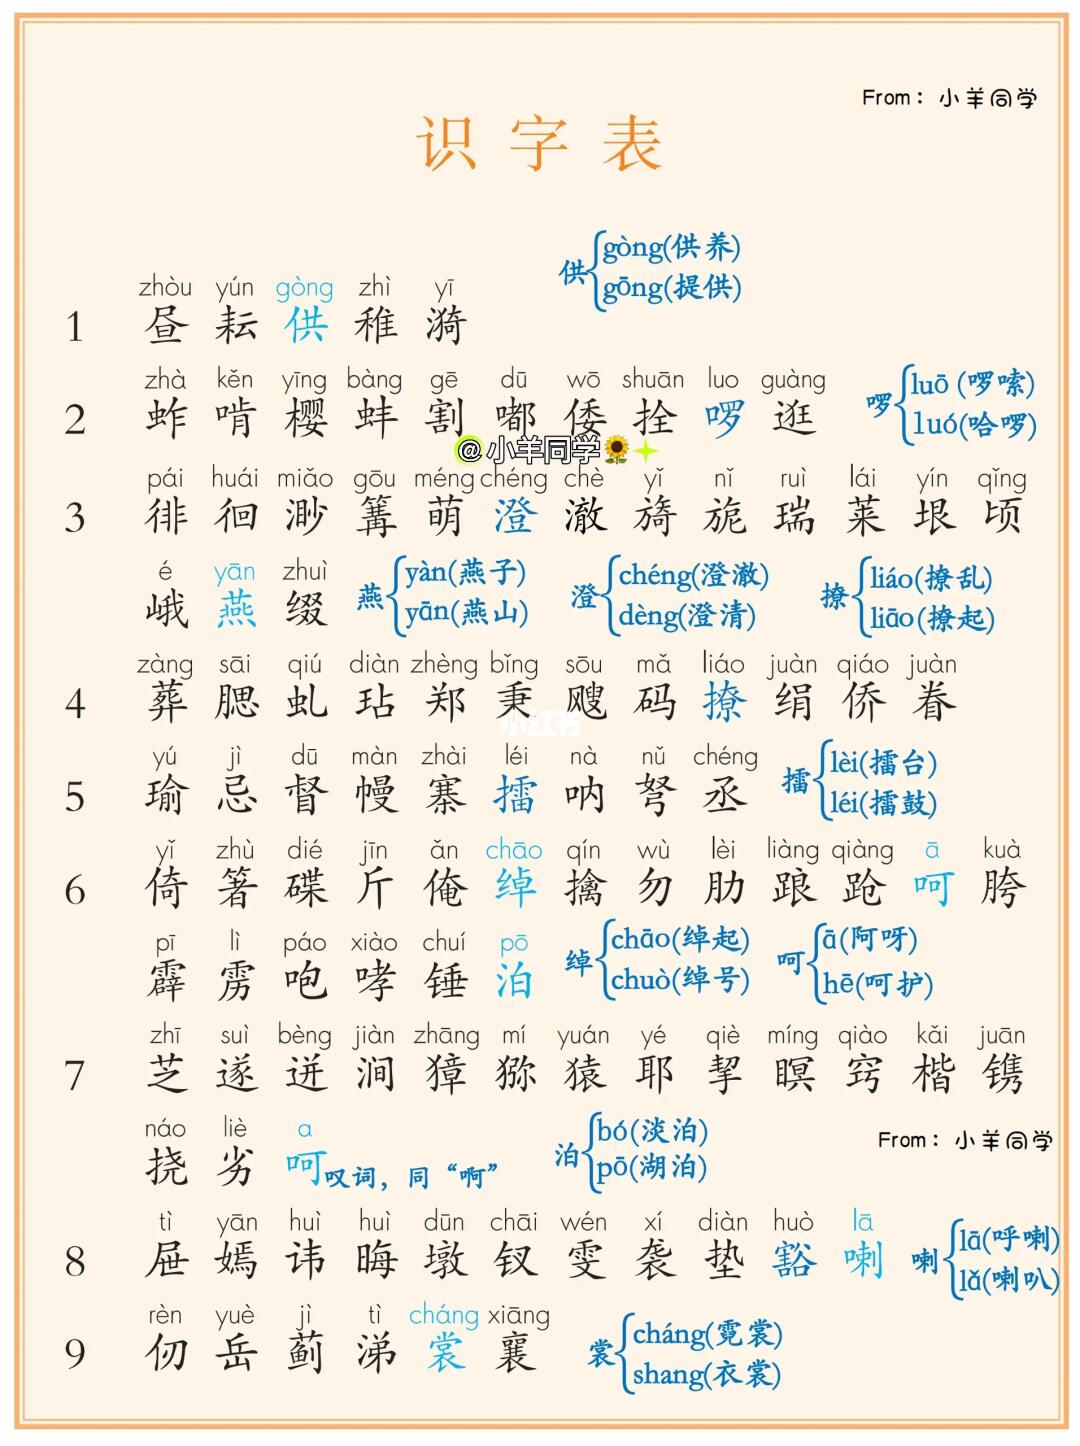 From：小羊同学
识字表
供 gòng(供养)
gōng(提供)
zhòu yún gòng zhì yī
1 昼 耘 供 稚 漪
zhà kěn yīng bàng gē dū wō shuān luo guàng
2 蚱 啃 樱 蚌 割 嘟 倭 拴 啰 逛
啰 luō (啰嗦)
luó(哈啰)
@小羊同学
pái huái miǎo gōu méng chéng chè yǐ nǐ ruì lái yín qǐng
3 徘 徊 渺 篝 萌 澄 澈 旖 旎 瑞 莱 垠 顷
é yān zhuì
峨 燕 缀
燕 yàn(燕子)
yān(燕山)
澄 chéng(澄澈)
dèng(澄清)
撩 liáo(撩乱)
liāo(撩起)
zàng sāi qiú diàn zhèng bǐng sōu mǎ liáo juàn qiáo juàn
4 葬 腮 虬 玷 郑 秉 飕 码 撩 绢 侨 眷
小红书
yú jì dū màn zhài léi nà nǔ chéng
5 瑜 忌 督 幔 寨 擂 呐 弩 丞
擂 lèi(擂台)
léi(擂鼓)
yǐ zhù dié jīn ǎn chāo qín wù lèi liàng qiàng ā kuà
6 倚 箸 碟 斤 俺 绰 擒 勿 肋 踉 跄 呵 胯
pī lì páo xiào chuí pō
霹 雳 咆 哮 锤 泊
绰 chāo(绰起)
chuò(绰号)
呵 ā(阿呀)
hē(呵护)
zhī suì bèng jiàn zhāng mí yuán yé qiè míng qiào kǎi juān
7 芝 遂 迸 涧 獐 猕 猿 耶 挈 瞑 窍 楷 镌
náo liè a
挠 劣 呵 叹词，同“啊”
泊 bó(淡泊)
pō(湖泊)
From：小羊同学
tì yān huì huì dūn chāi wén xí diàn huò lā
8 屉 嫣 讳 晦 墩 钗 雯 袭 垫 豁 喇
喇 lā(呼喇)
lǎ(喇叭)
rèn yuè jì tì cháng xiāng
9 仞 岳 蓟 涕 裳 襄
裳 cháng(霓裳)
shang(衣裳)